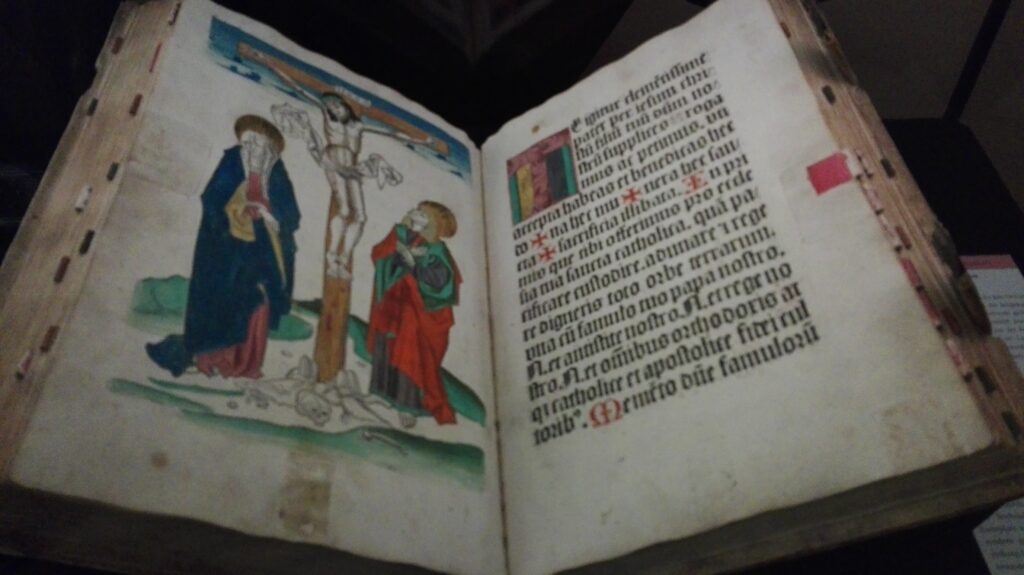 TE igitur clemētissime
pater per iesum chri-
stū filiū tuū dñm no-
strū supplices roga
mus ac petimus. vti
accepta habeas et benedicas hec
do ✠ na hec mu ✠ nera hec san
cta ✠ sacrificia illibata. In pri
mis que tibi offerimus pro ecle
sia tua sancta catholica. quā pa
cificare custodire. adunare ⁊ rege
re digneris toto orbe terrarum.
vna cū famulo tuo papa nostro.
N. et antistite nostro. N. et rege no
stro. N. et omībus orthodoxis at
qꝫ catholice et apostolice fidei cul
toribꝰ. Memēto dñe famulorū